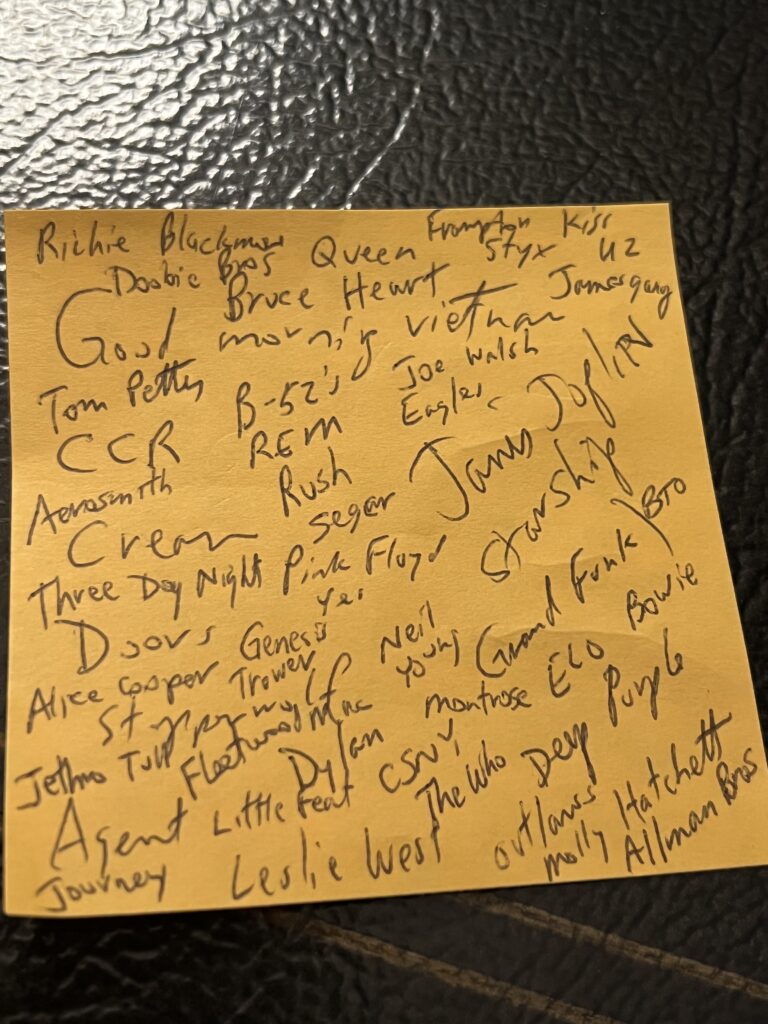 Richie Blackmore Queen Frampton Kiss
Doobie Bros Styx U2
Bruce Heart Jamesgang
Good morning vietnam
Tom Petty B-52's Joe Walsh
CCR REM Eagles Janis Joplin
Aerosmith Rush
Cream Segar Starship BTO
Three Dog Night Pink Floyd
Doors Genesis Yes Grand Funk
Alice Cooper Trower Neil Young Bowie
Steppenwolf Montrose ELO
Jethro Tull Fleetwood Mac Dylan CSNY Deep Purple
Agent Little Feat The Who
Journey Leslie West Outlaws Molly Hatchett
Allman Bros